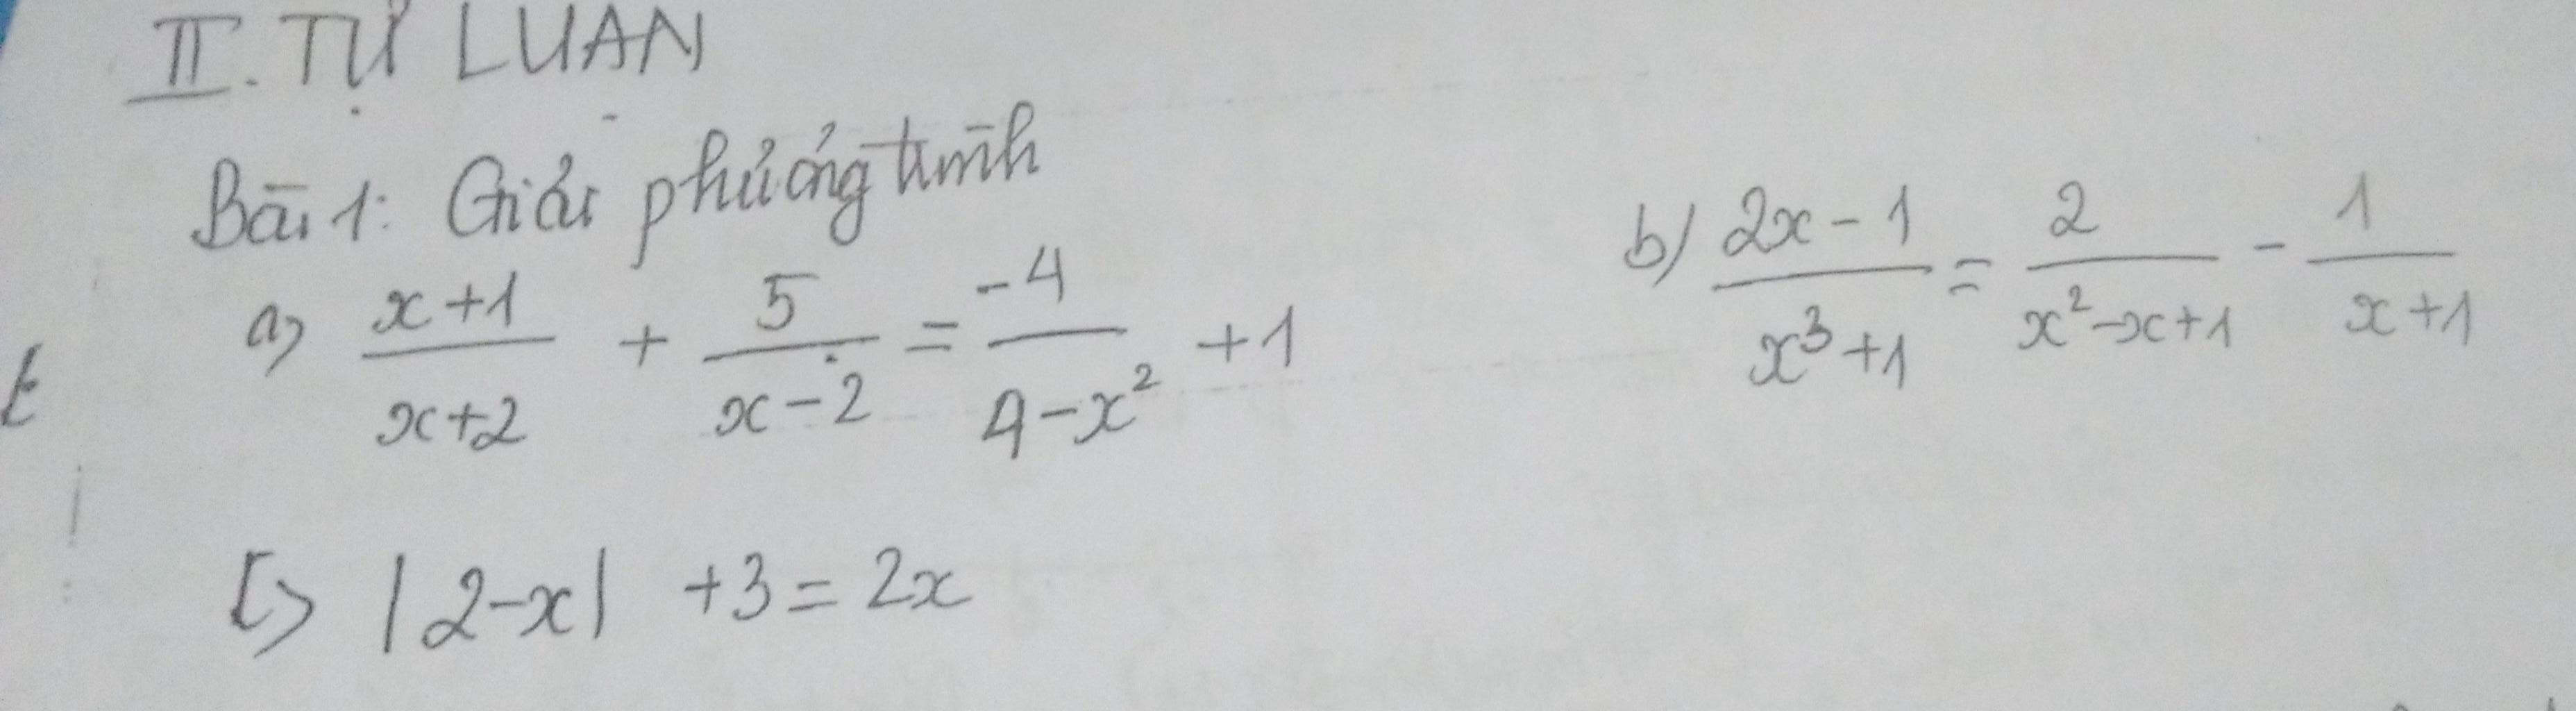 II. TỰ LUẬN
Bài 1: Giải phương trình
a) \frac{x+1}{x+2} + \frac{5}{x-2} = \frac{-4}{4-x^2} + 1
b) \frac{2x-1}{x^3+1} = \frac{2}{x^2-x+1} - \frac{1}{x+1}
c) |2-x| +3 = 2x